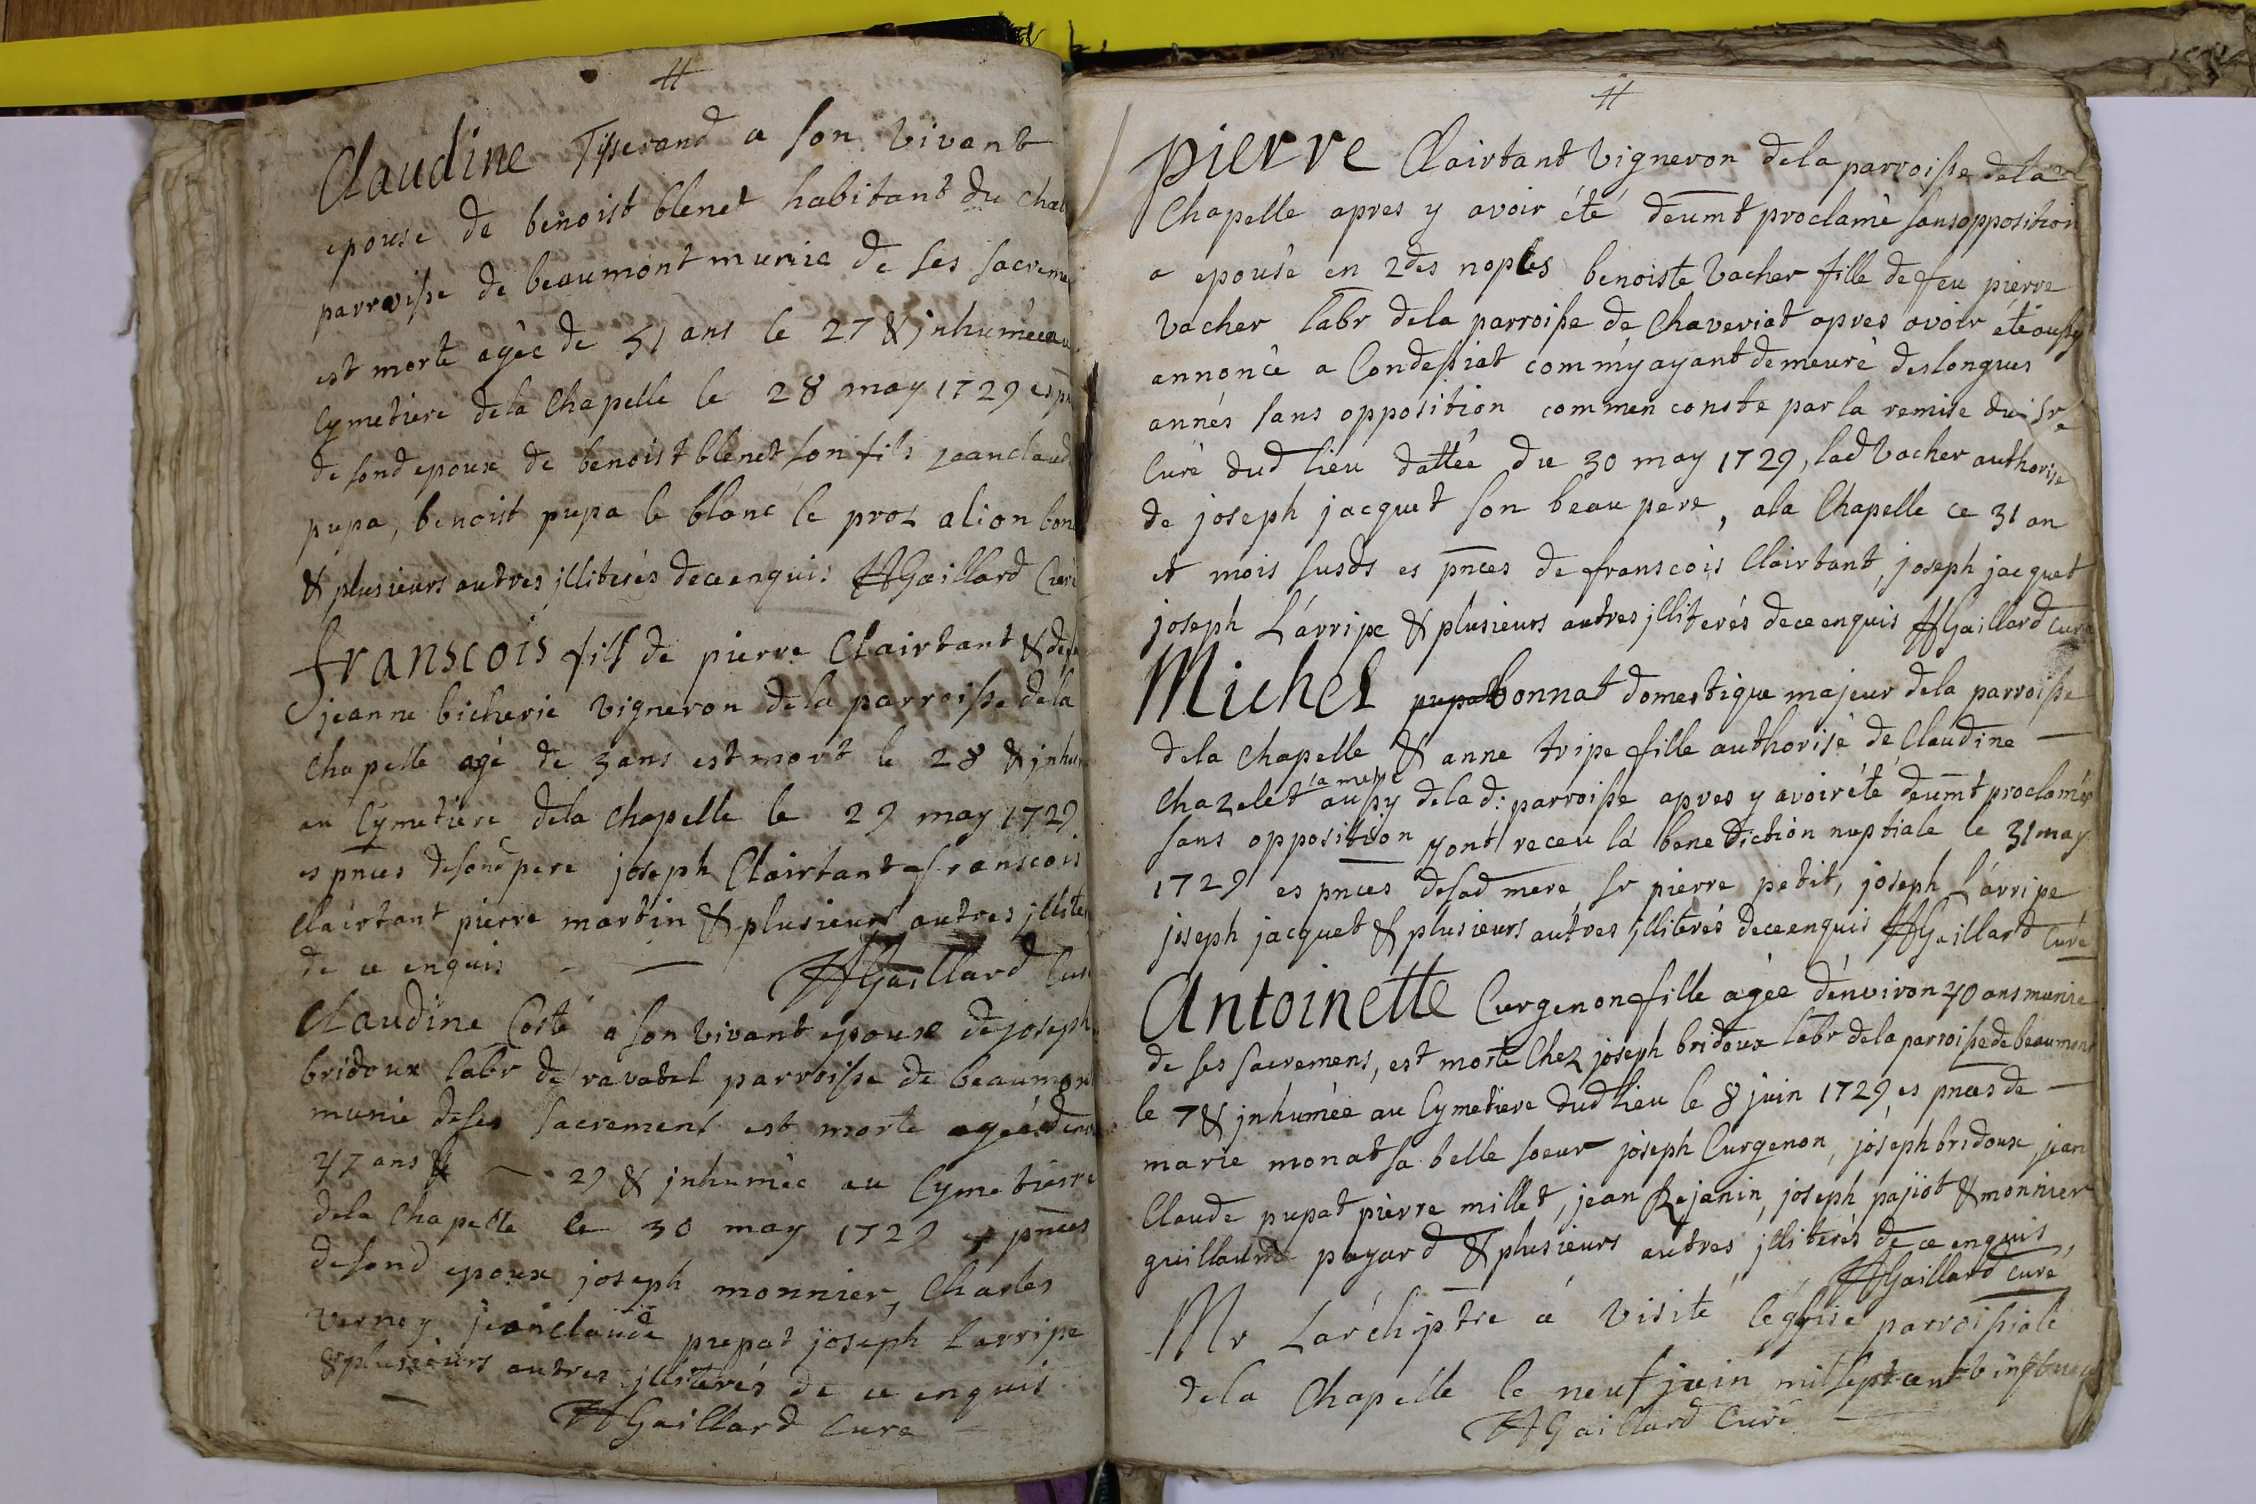 Claudine Tisserand a son vivant
epouse de benoist blenet habitant du Chat
parroisse de beaumont munie de ses sacreme
est morte agèe de 51 ans le 27 & jnhumèe au
Cymetiere dela Chapelle le 28 may 1729 es pn
de sond epoux de benoist blenet son fils jeanclaud
pupa, benoist pupa le blanc le pros alion bon
& plusieurs autres jlliterés deceenquis HGaillard Curé
franscois fils de pierre Clairtant & de
jeanne bicherie vigneron dela parroisse dela
Chapelle agé de 3 ans est mort le 28 & jnhum
au Cymetiere dela Chapelle le 29 may 1729
es pnces desond pere joseph Clairtant franscois
Clairtant pierre martin & plusieurs autres jllite
de ce enquis HGaillard Cure
Claudine Coste a son vivant epouse de joseph
bridoux labr de ravatel parroisse de beaumont
munie deses sacremens est morte agée denv
47 ans 29 & jnhumèe au Cymetierre
dela Chapelle le 30 may 1729 es pnces
desond epoux joseph monnier, Charles
verney jeanclaude prepat joseph Larripe
& plusieurs autres jlliterés de ce enquis
HGaillard Cure
pierre Clairtant vigneron dela parroisse dela
Chapelle apres y avoir été deumt proclamè sans opposition
a epousè en 2des noples benoiste vacher fille de feu pierre
vacher labr dela parroisse de Chaveriat apres avoir éte aussy
annoncè a Condessiat comm'y ayant demeurè deslongues
annés sans opposition commen conste par la remise du Sr
Curè dud lieu dattée du 30 may 1729, lad vacher authorise
de joseph jacquet son beau pere, ala Chapelle ce 31 an
et mois susds es pnces de franscois Clairtant, joseph jacquet
joseph Lárripe & plusieurs autres jlliterés deceenquis HGaillard Cure
Michel bonnat domestique majeur dela parroisse
dela chapelle & anne tripe fille authorisé de Claudine
Chazelet sa mere aussy dela d: parroisse apres y avoir été deumt proclamés
sans opposition y ont receu lá benediction nuptiale le 31 may
1729 es pnces desad mere sr pierre petit, joseph Lárripe
joseph jacquet & plusieurs autres jlliterés deceenquis HGaillard Curé
Antoinette Curgenon fille agèe d'environ 40 ans munie
de ses sacremens, est morte Chez joseph bridoux labr dela parroisse de beaumont
le 7 & jnhumée au Cymetiere dud lieu le 8 juin 1729 es pnces de
marie monat sa belle soeur joseph Curgenon, joseph bridoux, jean
Claude pupat pierre millet, jean Rejanin, joseph pajiot & monnier
guillaume payard & plusieurs autres jlliterés de ce enquis,
HGaillard Curé
Mr Lárchiptre a visité léglise parroissiale
dela Chapelle le neuf juin mil sept cent vingtneuf
HGaillard Curé